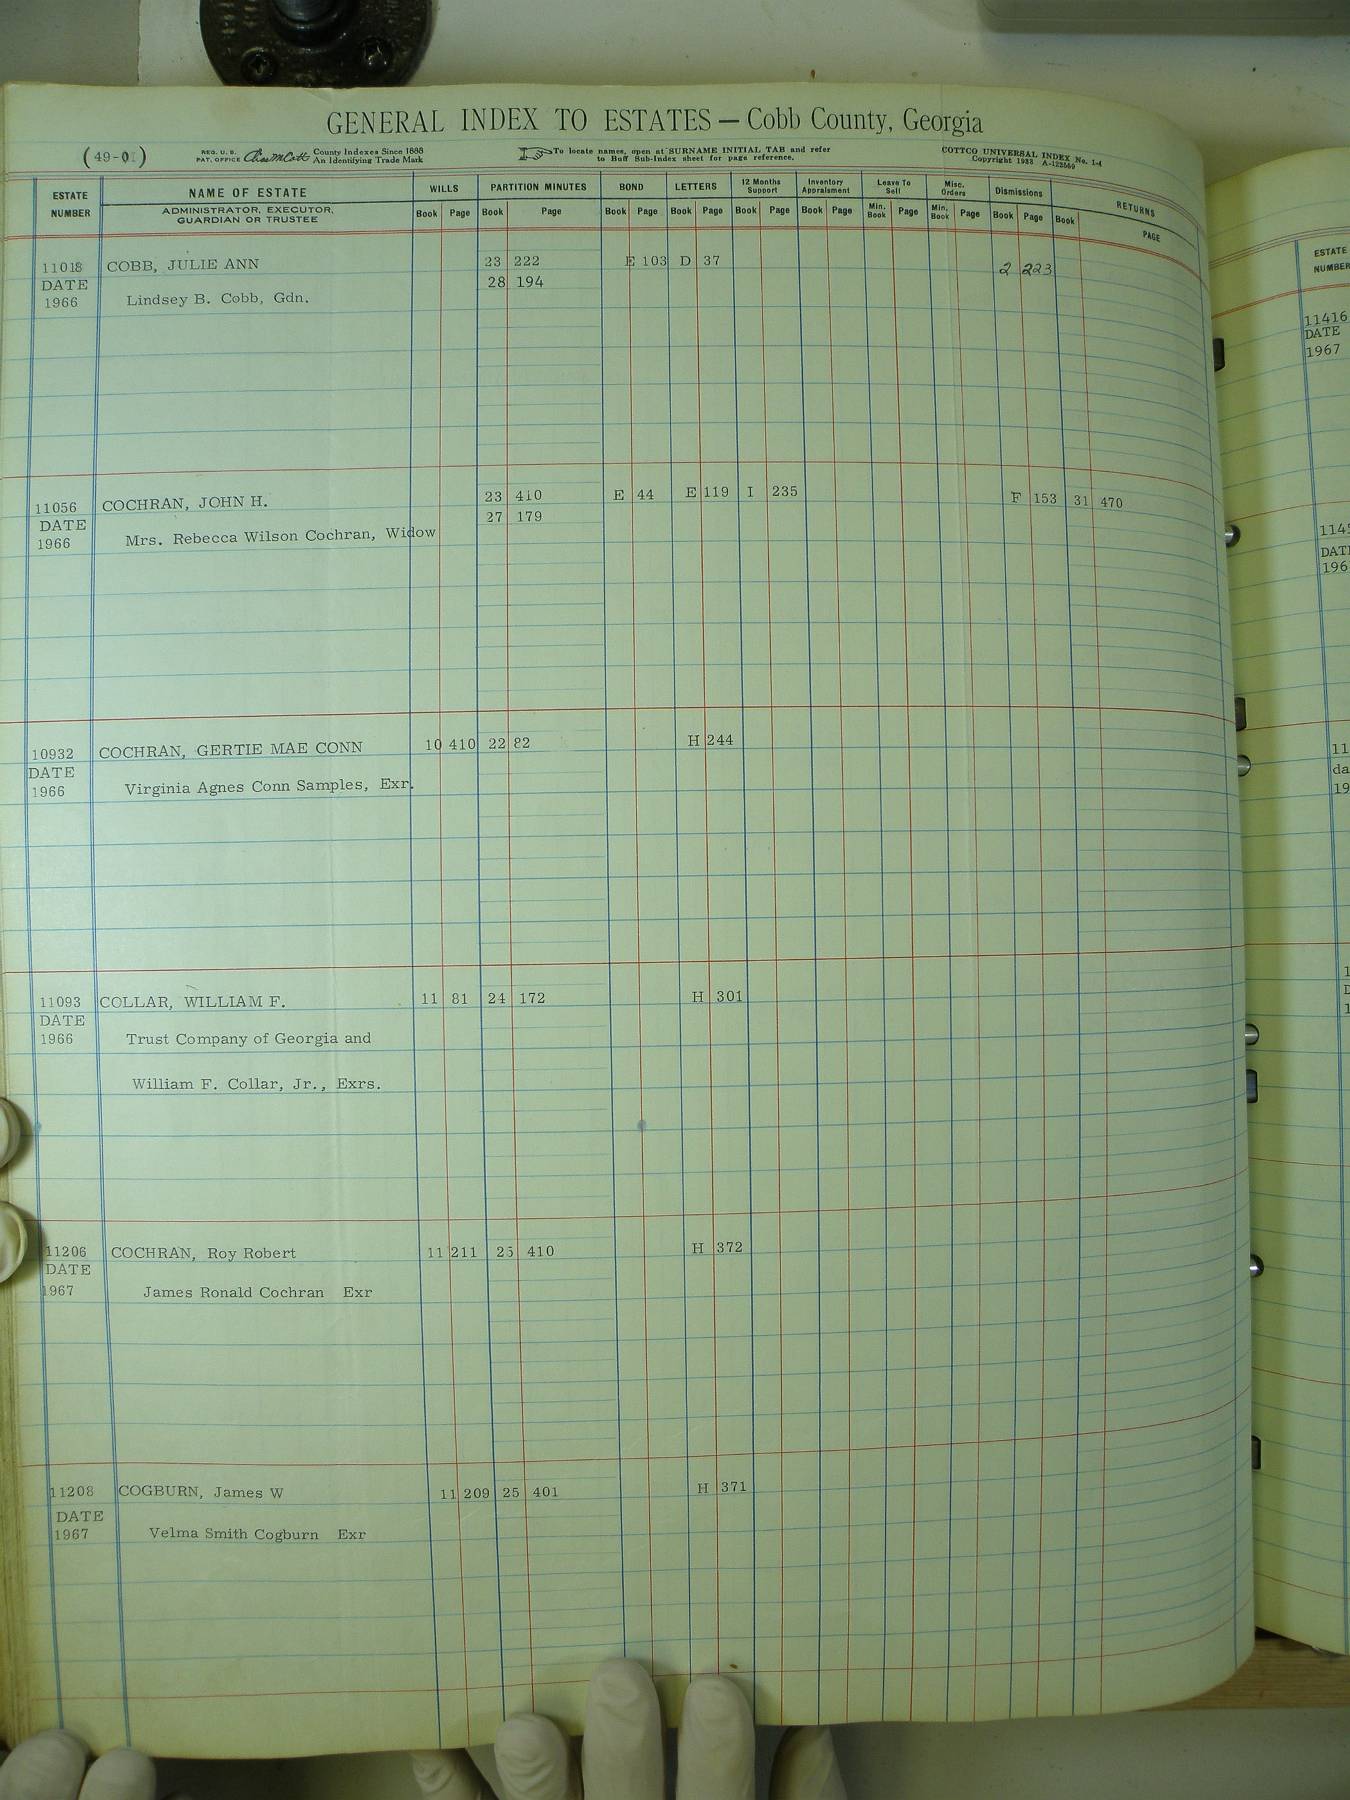 GENERAL INDEX TO ESTATES — Cobb County, Georgia
(49-0 )
REG. U. S. PAT. OFFICE
County Indexes Since 1888
An Identifying Trade Mark
To locate names, open at SURNAME INITIAL TAB and refer
to Buff Sub-Index sheet for page reference.
COTTCO UNIVERSAL INDEX No. 1-4
Copyright 1933
ESTATE NUMBER NAME OF ESTATE WILLS PARTITION MINUTES BOND LETTERS 12 Months Support Inventory Appraisment Leave To Sell Misc. Orders Dismissions RETURNS
ADMINISTRATOR, EXECUTOR, GUARDIAN OR TRUSTEE Book Page Book Page Book Page Book Page Book Page Book Page Min. Book Page Min. Book Page Book Page Book PAGE
11018 COBB, JULIE ANN 23 222 E 103 D 37 2 223
DATE 28 194
1966 Lindsey B. Cobb, Gdn.
11056 COCHRAN, JOHN H. 23 410 E 44 E 119 I 235 F 153 31 470
DATE 27 179
1966 Mrs. Rebecca Wilson Cochran, Widow
10932 COCHRAN, GERTIE MAE CONN 10 410 22 82 H 244
DATE
1966 Virginia Agnes Conn Samples, Exr.
11093 COLLAR, WILLIAM F. 11 81 24 172 H 301
DATE
1966 Trust Company of Georgia and
William F. Collar, Jr., Exrs.
11206 COCHRAN, Roy Robert 11 211 25 410 H 372
DATE
1967 James Ronald Cochran Exr
11208 COGBURN, James W 11 209 25 401 H 371
DATE
1967 Velma Smith Cogburn Exr
ESTATE
NUMBER
11416
DATE
1967